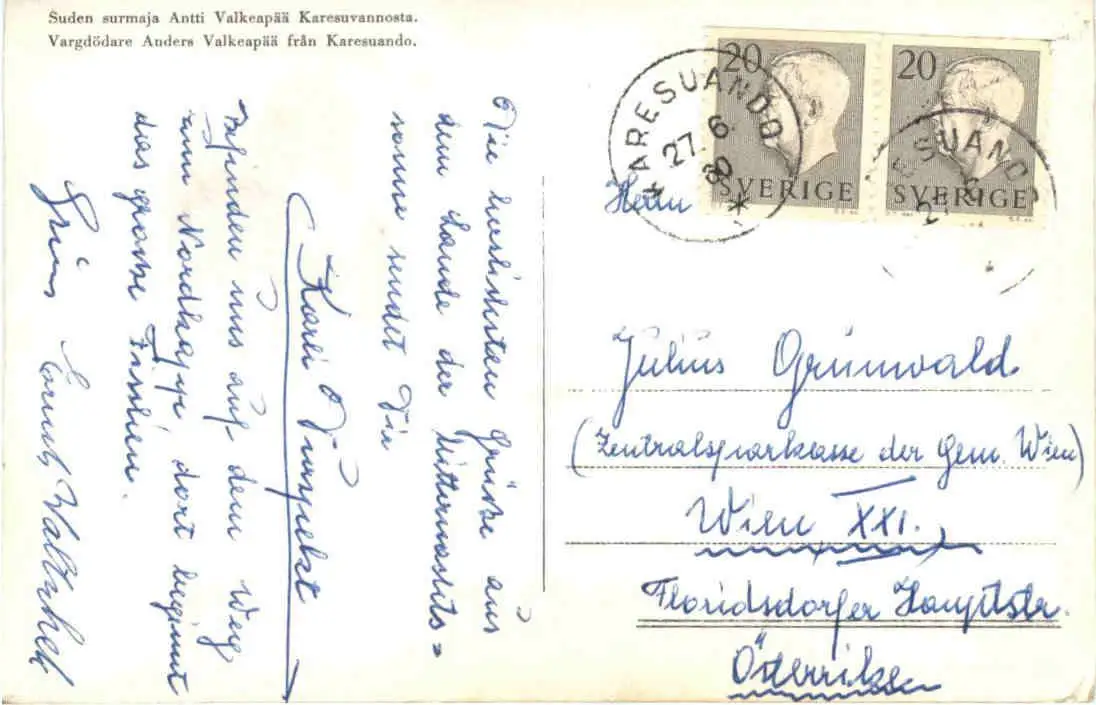 Suden surmaja Antti Valkeapää Karesuvannosta.
Vargdödare Anders Valkeapää från Karesuando.
Die herzlichsten Grüsse aus
dem Lande der Mitternachts=
sonne sendet Dir
Karli
Befinden uns auf dem Weg
zum Nordkapp, dort beginnt
das grosse Fischen.
Ernst
20
SVERIGE
20
SVERIGE
KARESUANDO
27. 6
60
Herrn
Julius Grünwald
(Zentralsparkasse der Gem. Wien)
Wien XXI.
Floridsdorfer Hauptstr.
Österriken